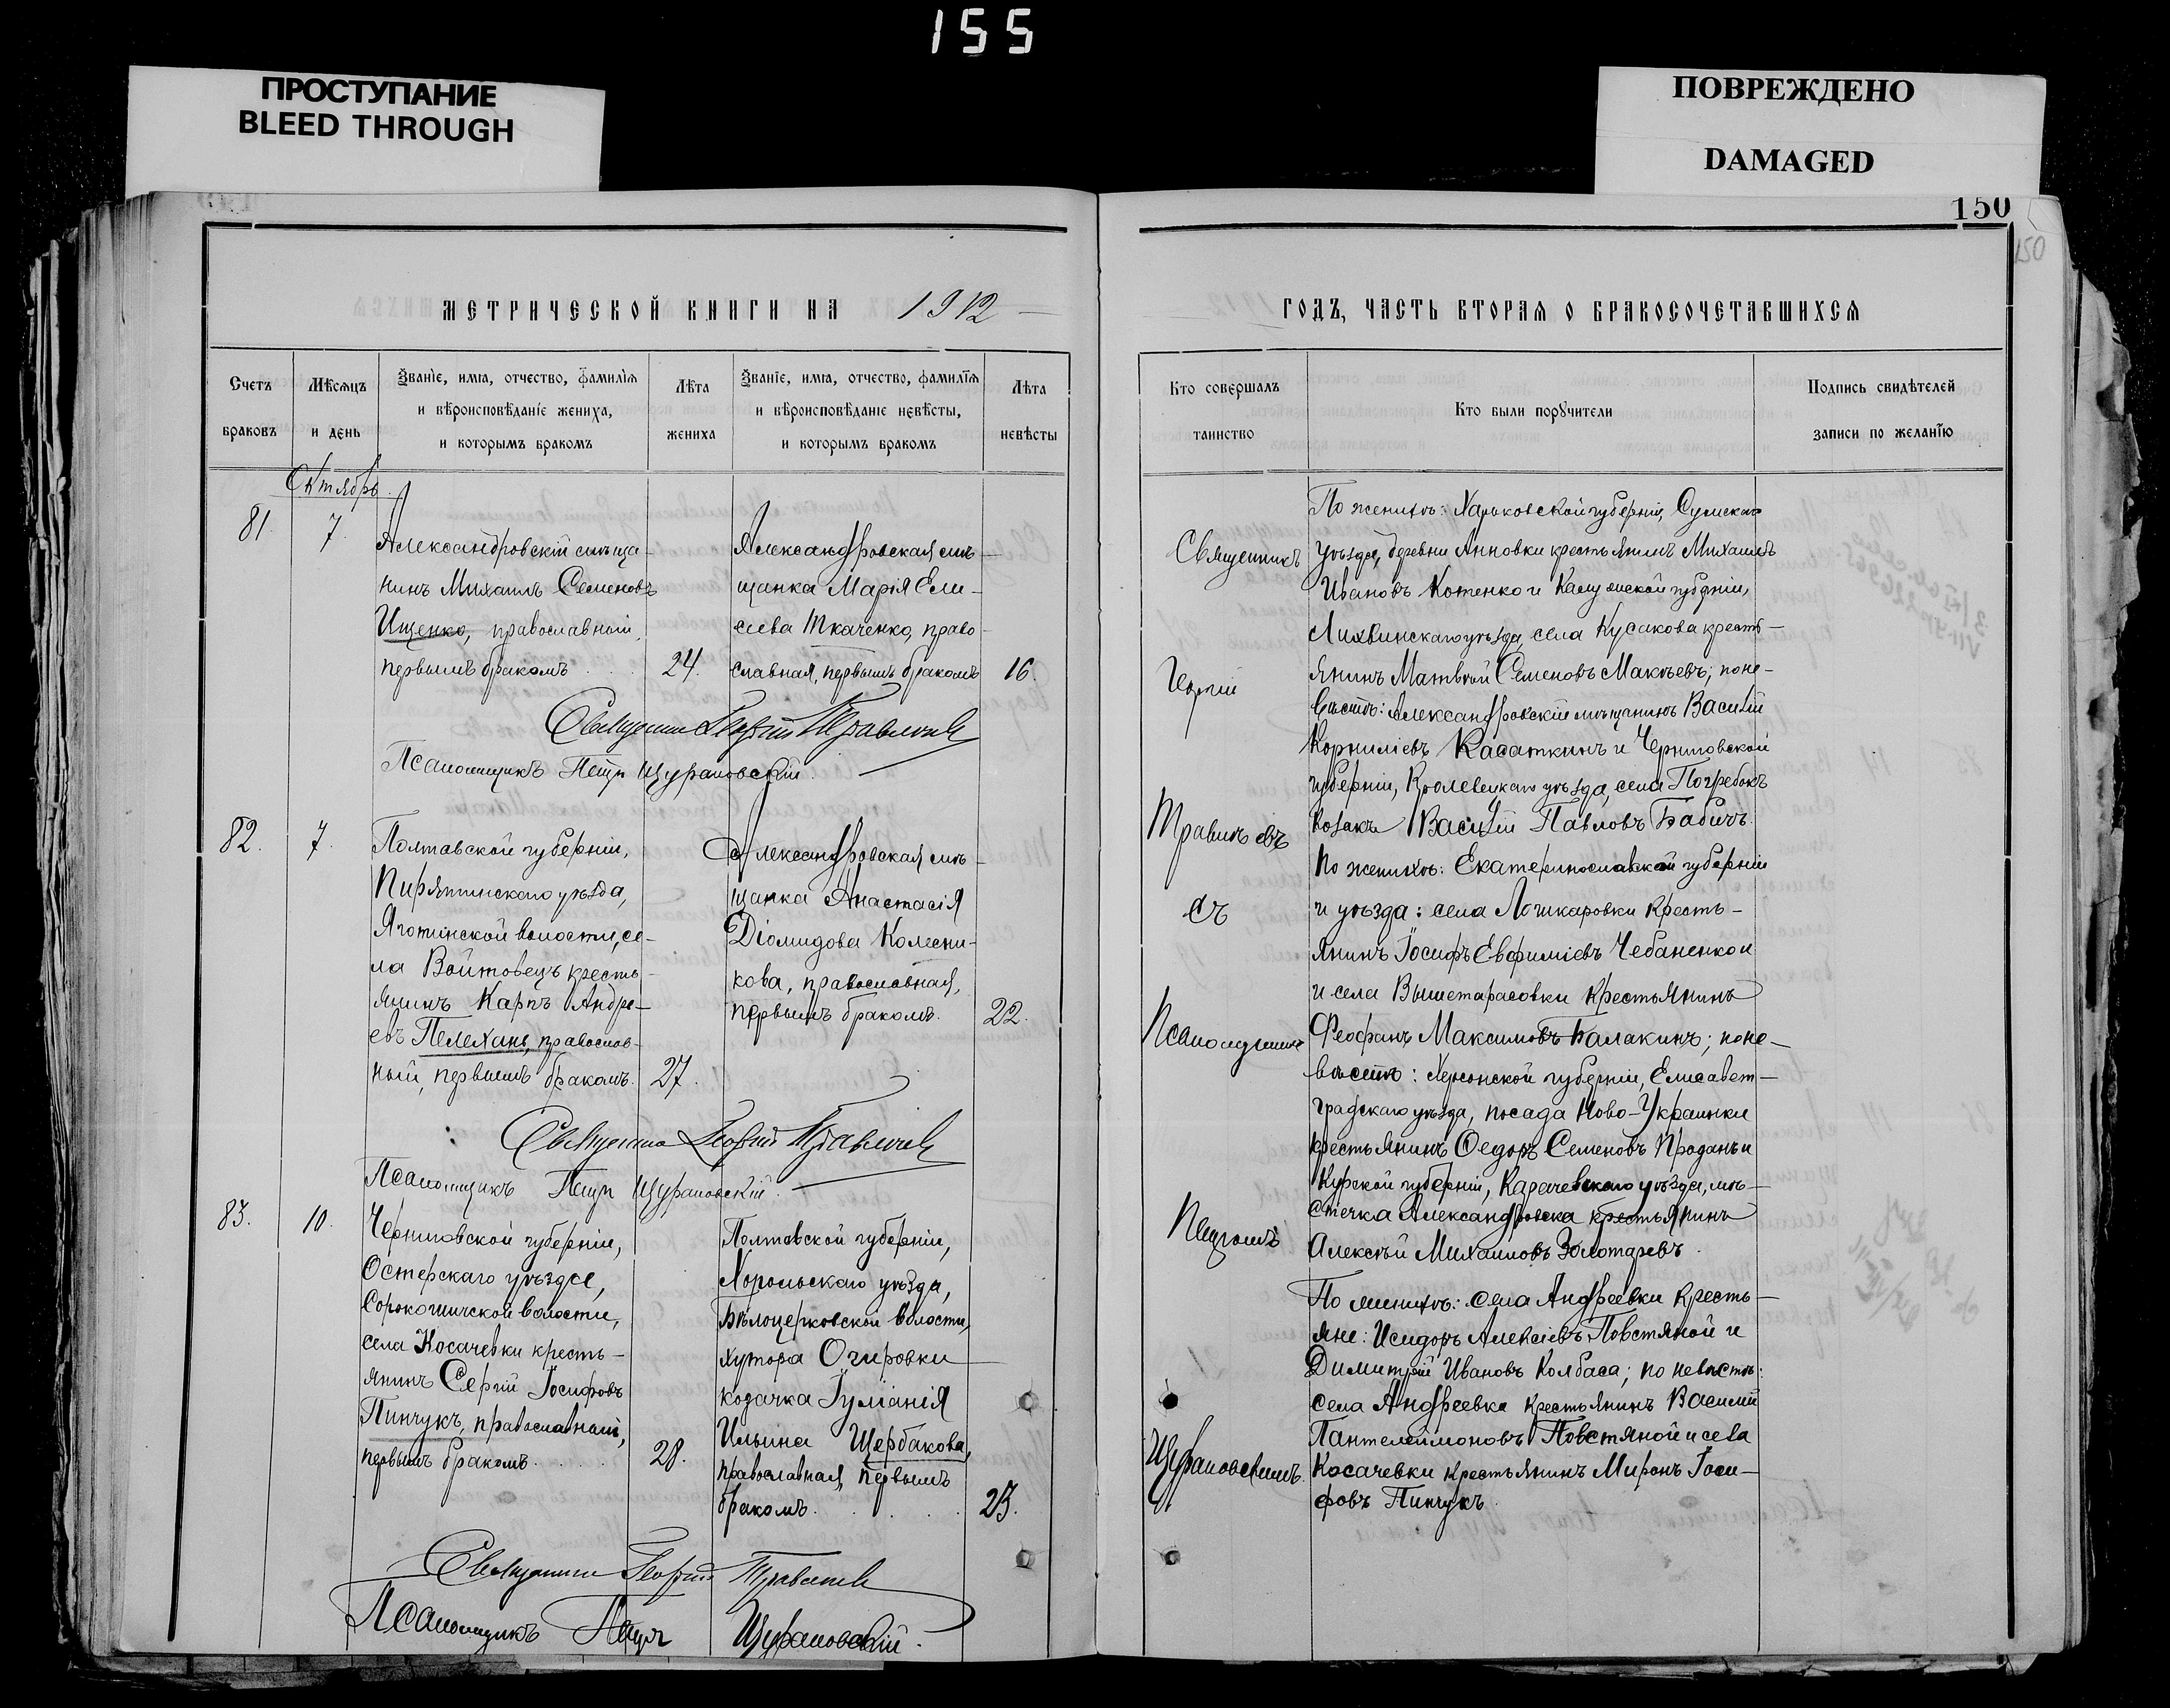 155
ПРОСТУПАНИЕ
BLEED THROUGH
ПОВРЕЖДЕНО
DAMAGED
150
150
МЕТРИЧЕСКОЙ КНИГИ НА 1912
ГОДЪ, ЧАСТЬ ВТОРАЯ О БРАКОСОЧЕТАВШИХСЯ
Счетъ
браковъ
Мѣсяцъ
и день
Званіе, имя, отчество, фамилія
и вѣроисповѣданіе жениха,
и которымъ бракомъ
Лѣта
жениха
Званіе, имя, отчество, фамилія
и вѣроисповѣданіе невѣсты,
и которымъ бракомъ
Лѣта
невѣсты
Кто совершалъ
таинство
Кто были поручители
Подпись свидѣтелей
записи по желанію
Октябрь
81.
7.
Александровскій мѣща-
нинъ Михаилъ Семеновъ
Ищенко, православный,
первымъ бракомъ
24.
Александровская мѣ-
щанка Марія Ели-
сеева Ткаченко, право-
славная, первымъ бракомъ
16.
Священникъ Георгій
Псаломщикъ Петръ Щурановскій
82.
7.
Полтавской губерніи,
Пирятинскаго уѣзда,
Яготинской волости, се-
ла Войтовецъ кресть-
янинъ Карпъ Андре-
евъ Пелехань, православ-
ный, первымъ бракомъ.
27.
Александровская мѣ-
щанка Анастасія
Діомидова Колесни-
кова, православная,
первымъ бракомъ.
22.
Священникъ Георгій
Псаломщикъ Петръ Щурановскій.
83.
10.
Черниговской губерніи,
Остерскаго уѣзда,
Сорокошичской волости,
села Косачевки кресть-
янинъ Сергій Іосифовъ
Пинчукъ, православный,
первымъ бракомъ
28.
Полтавской губерніи,
Хорольскаго уѣзда,
Бѣлоцерковской волости,
хутора Огировки
козачка Іуліанія
Ильина Щербакова,
православная, первымъ
бракомъ
23.
Священникъ Георгій
Псаломщикъ Петръ Щурановскій.
Священникъ
Георгій
съ
Псаломщикомъ
Петромъ
Щурановскимъ.
По женихѣ: Харьковской губерніи, Сумскаго
уѣзда, деревни Анновки крестьянинъ Михаилъ
Ивановъ Котенко и Калужской губерніи,
Лихвинскаго уѣзда, села Кусакова кресть-
янинъ Матвѣй Семеновъ Макѣевъ; по не-
вѣстѣ: Александровскій мѣщанинъ Василій
Корниліевъ Касаткинъ и Черниговской
губерніи, Кролевецкаго уѣзда, села Погребокъ
козакъ Василій Павловъ Бабичъ.
По женихѣ: Екатеринославской губерніи
и уѣзда: села Лошкаровки кресть-
янинъ Іосифъ Евфиміевъ Чебаненко и
и села Вышетарасовки крестьянинъ
Феофанъ Максимовъ Балакинъ; по не-
вѣстѣ: Херсонской губерніи, Елисавет-
градскаго уѣзда, посада Ново-Украинки
крестьянинъ Ѳедоръ Семеновъ Проданъ и
Курской губерніи, Карачевскаго уѣзда, мѣ-
стечка Александровска крестьянинъ
Алексѣй Михаиловъ Золотаревъ.
По женихѣ: села Андреевки кресть-
яне: Исидоръ Алексіевъ Повстяной и
Димитрій Ивановъ Колбаса; по невѣстѣ:
села Андреевки крестьянинъ Василій
Пантелеймоновъ Повстяной и села
Косачевки крестьянинъ Миронъ Іоси-
фовъ Пинчукъ.